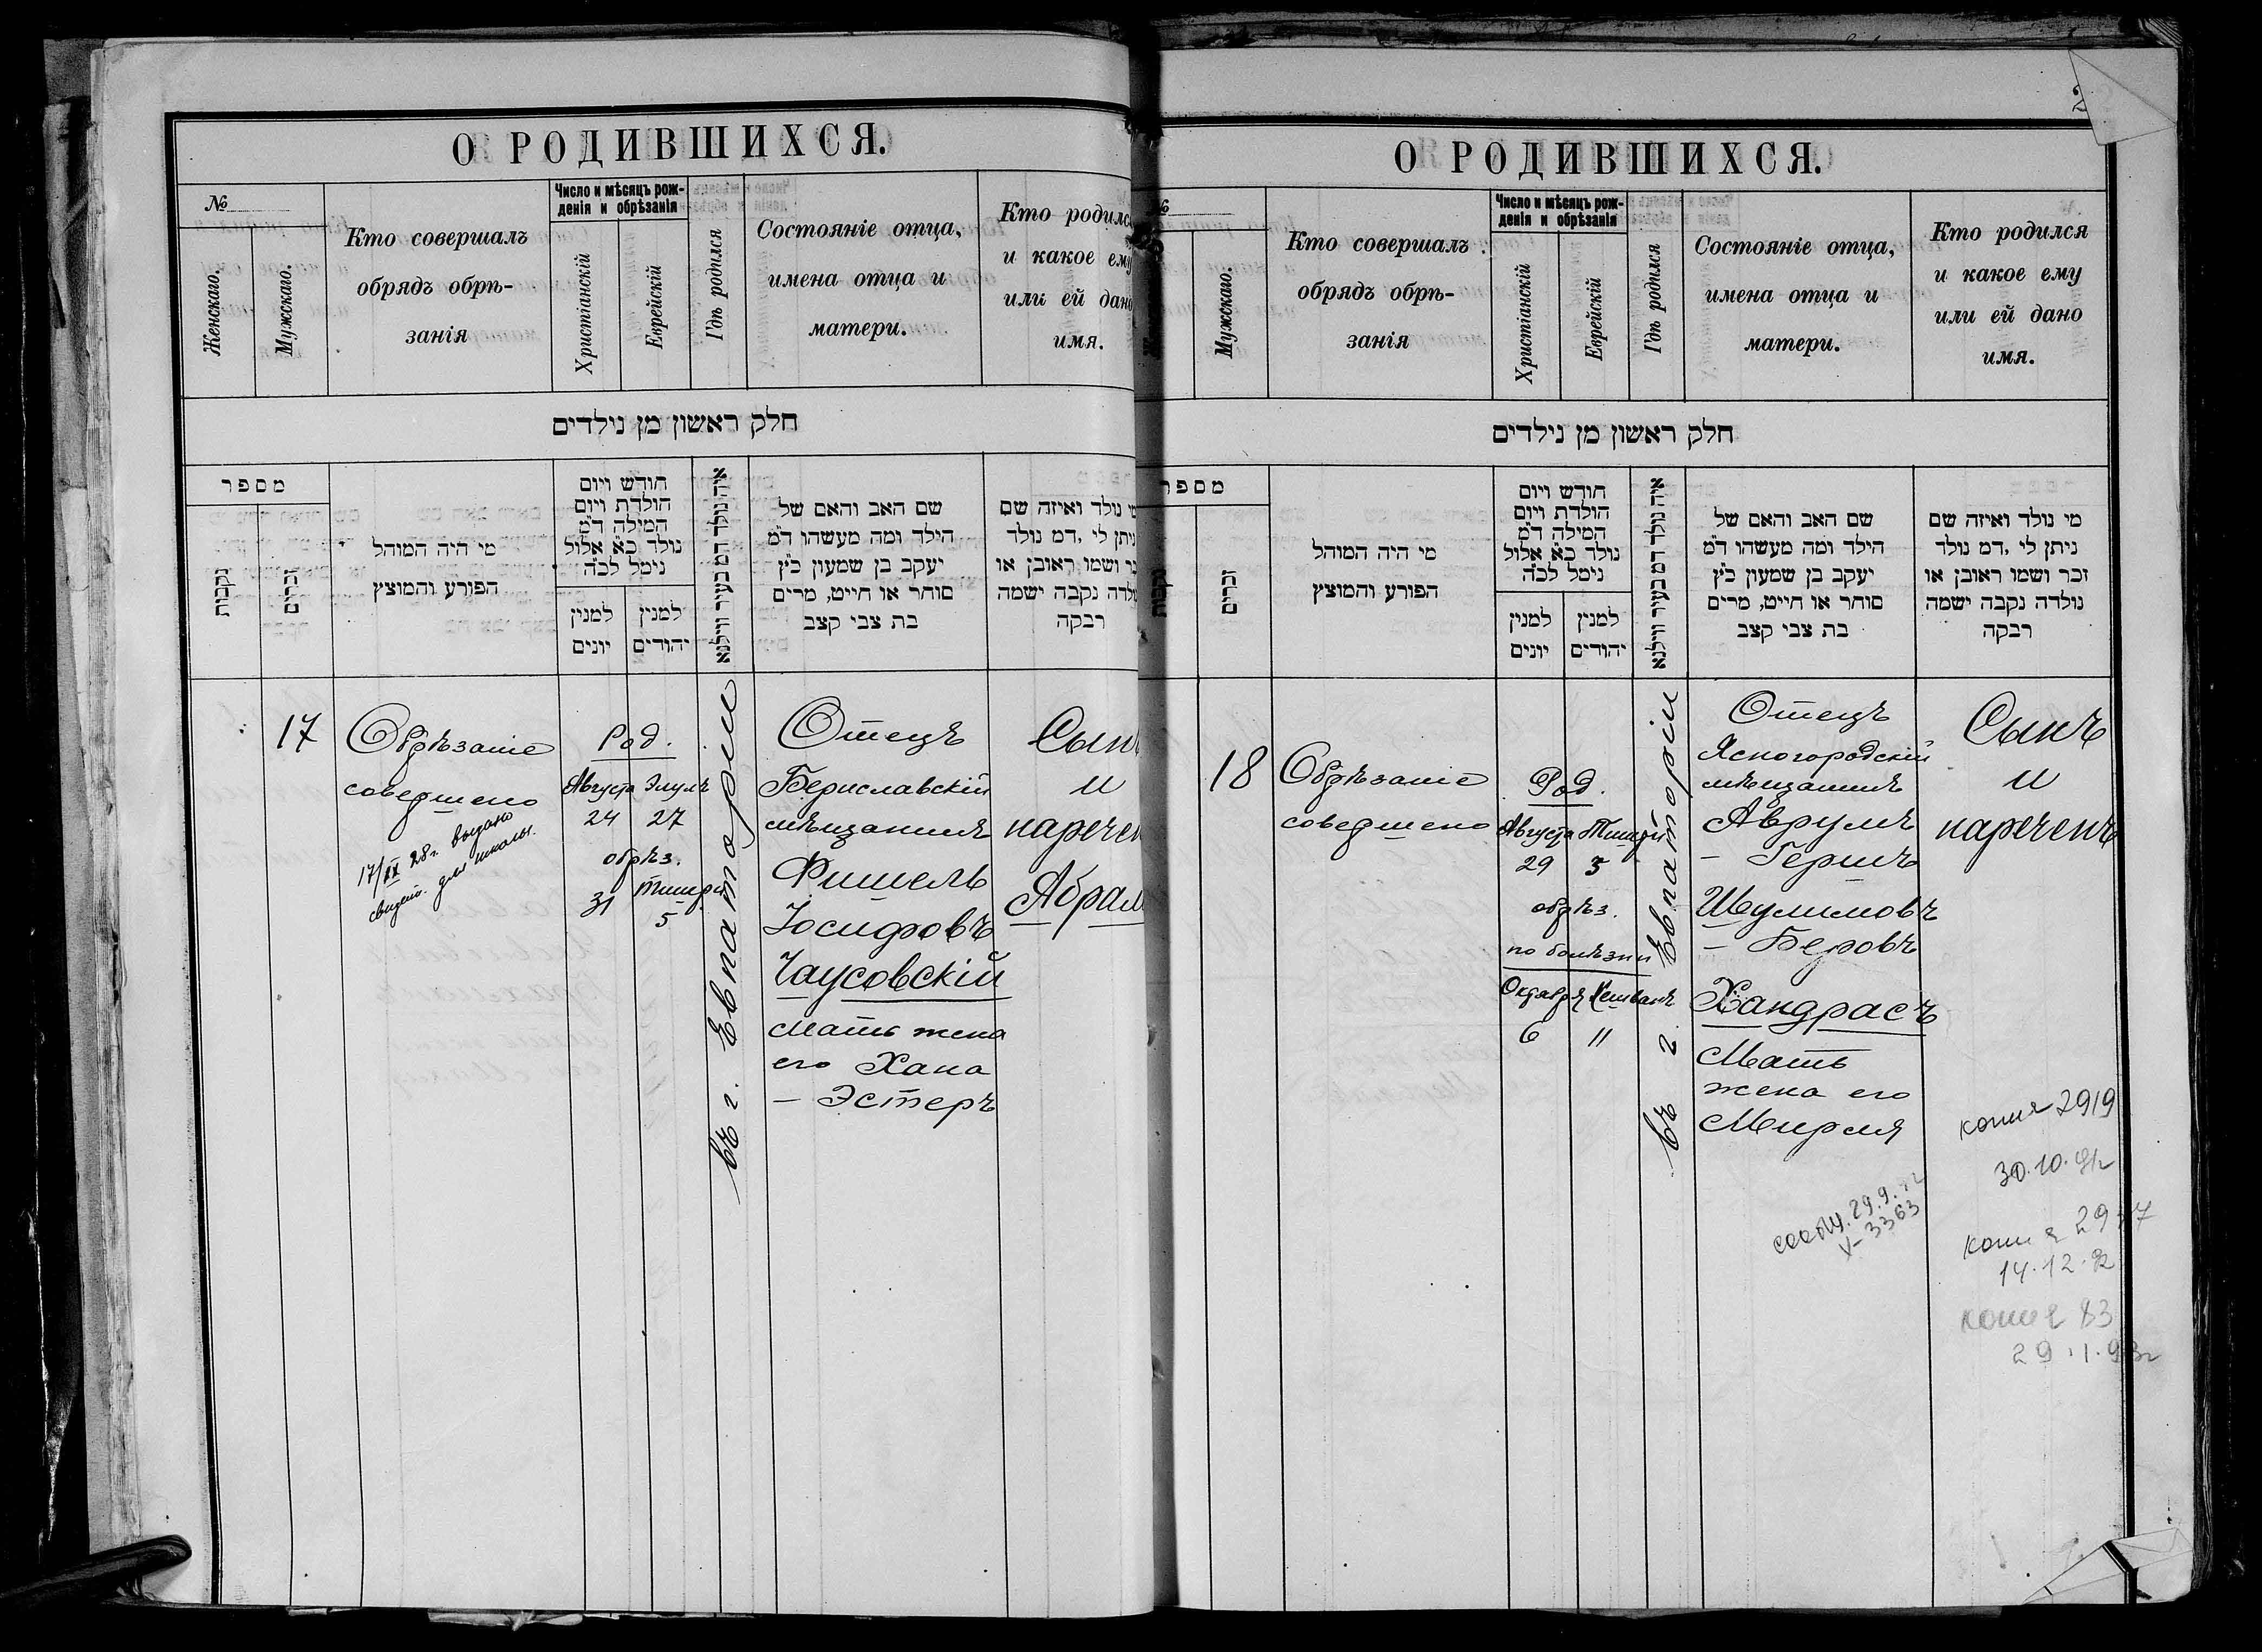 О РОДИВШИХСЯ.
№
Женскаго.
Мужскаго.
Кто совершалъ
обрядъ обрѣ-
занія
Число и мѣсяцъ рож-
денія и обрѣзанія
Христіанскій
Еврейскій
Гдѣ родился
Состояніе отца,
имена отца и
матери.
Кто родилс
и какое ему
или ей дано
имя.
חלק ראשון מן נילדים
מספר
נקבות
זכרים
מי היה המוהל
הפורע והמוצץ
חודש ויום
הולדת ויום
המילה ד״מ
נולד כ״א אלול
נימל לכ״ה
למנין
יונים
למנין
יהודים
איה נולד דמ בעיר ווילנא
שם האב והאם של
הילד ומה מעשהו ד״מ
יעקב בן שמעון כ״ץ
סוחר או חייט, מרים
בת צבי קצב
מי נולד ואיזה שם
ניתן לי ,דמ נולד
זכר ושמו ראובן או
נולדה נקבה ישמה
רבקה
17
Обрѣзаніе
совершено
17/IX 28 г. выдано
свидет. для школы.
Род.
Августа Элулъ
24 27
обрѣз.
Тишри
31 5
въ г. Евпаторіи
Отецъ
Бериславскій
мѣщанинъ
Фишель
Іосифовъ
Чаусовскій
Мать жена
его Хана
– Эстеръ
Сынъ
и
наречен
Абрам
О РОДИВШИХСЯ.
№
Мужскаго.
Кто совершалъ
обрядъ обрѣ-
занія
Число и мѣсяцъ рож-
денія и обрѣзанія
Христіанскій
Еврейскій
Гдѣ родился
Состояніе отца,
имена отца и
матери.
Кто родился
и какое ему
или ей дано
имя.
חלק ראשון מן נילדים
מספר
נקבות
זכרים
מי היה המוהל
הפורע והמוצץ
חודש ויום
הולדת ויום
המילה ד״מ
נולד כ״א אלול
נימל לכ״ה
למנין
יונים
למנין
יהודים
איה נולד דמ בעיר ווילנא
שם האב והאם של
הילד ומה מעשהו ד״מ
יעקב בן שמעון כ״ץ
סוחר או חייט, מרים
בת צבי קצב
מי נולד ואיזה שם
ניתן לי ,דמ נולד
זכר ושמו ראובן או
נולדה נקבה ישמה
רבקה
18
Обрѣзаніе
совершено
Род.
Августа Тишри
29 3
обрѣз.
по болѣзни
Октября Хешванъ
6 11
въ г. Евпаторіи
Отецъ
Ясногородскій
мѣщанинъ
Аврумъ
– Гершъ
Шулимовъ
– Беровъ
Хандрасъ
Мать
жена его
Мирля
Сынъ
и
нареченъ
копия 2919
30.10.91г
копия
14.12.92
копия 83
29.1.93г
сообщ. 29.9.
V-3363